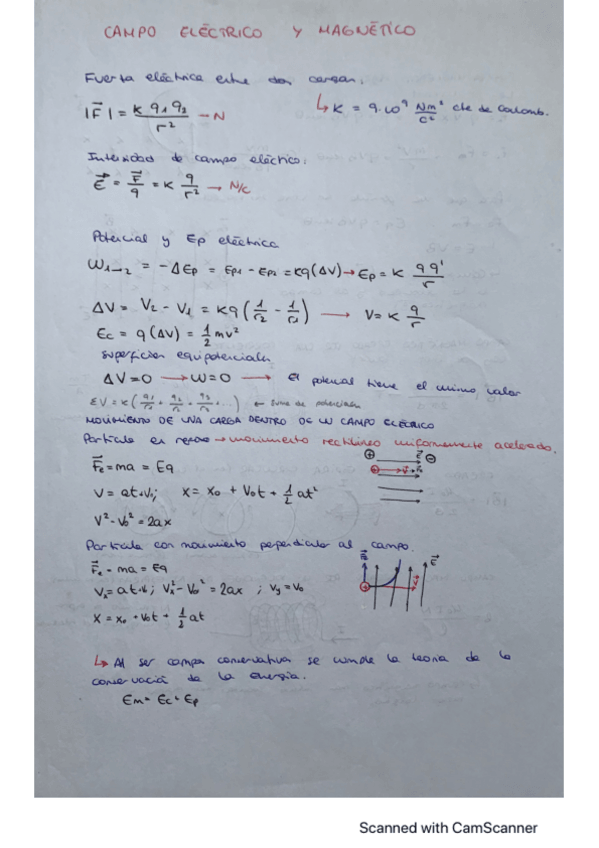 CAMPO ELÉCTRICO Y MAGNÉTICO
Fuerza eléctrica entre dos cargas:
|F⃗| = K q1 q2 / r² → N
↳ K = 9·10⁹ Nm²/C² cte de Coulomb.
Intensidad de campo eléctrico:
E⃗ = F⃗/q = K q/r² → N/C
Potencial y Ep eléctrica
W1→2 = -ΔEp = Ep1 - Ep2 = Kq(ΔV) → Ep = K q q'/r
ΔV = V2 - V1 = Kq(1/r2 - 1/r1) → V = K q/r
Ec = q(ΔV) = 1/2 mv²
Superficies equipotenciales
ΔV=0 → W=0 → El potencial tiene el mismo valor
ΣV = K(q1/r1 + q2/r2 + q3/r3 + ...) ← Suma de potenciales
MOVIMIENTO DE UNA CARGA DENTRO DE UN CAMPO ELÉCTRICO
Partícula en reposo → movimiento rectilíneo uniformemente acelerado.
F⃗e = ma = Eq
V = at + V0; X = X0 + V0t + 1/2 at²
V² - V0² = 2ax
Partícula con movimiento perpendicular al campo.
F⃗e = ma = Eq
Vx² - V0² = 2ax ; Vy = V0
X = X0 + V0t + 1/2 at
↳ Al ser campos conservativos se cumple la teoría de la
conservació de la energía.
Em = Ec + Ep
Scanned with CamScanner